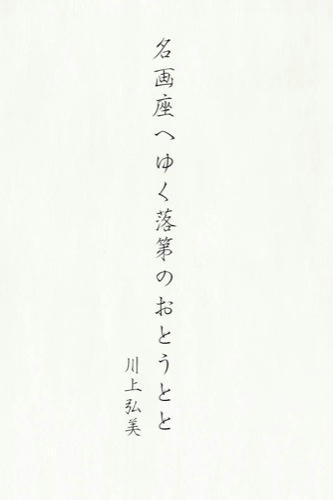 名画座へゆく落第のおとうとと
川上弘美